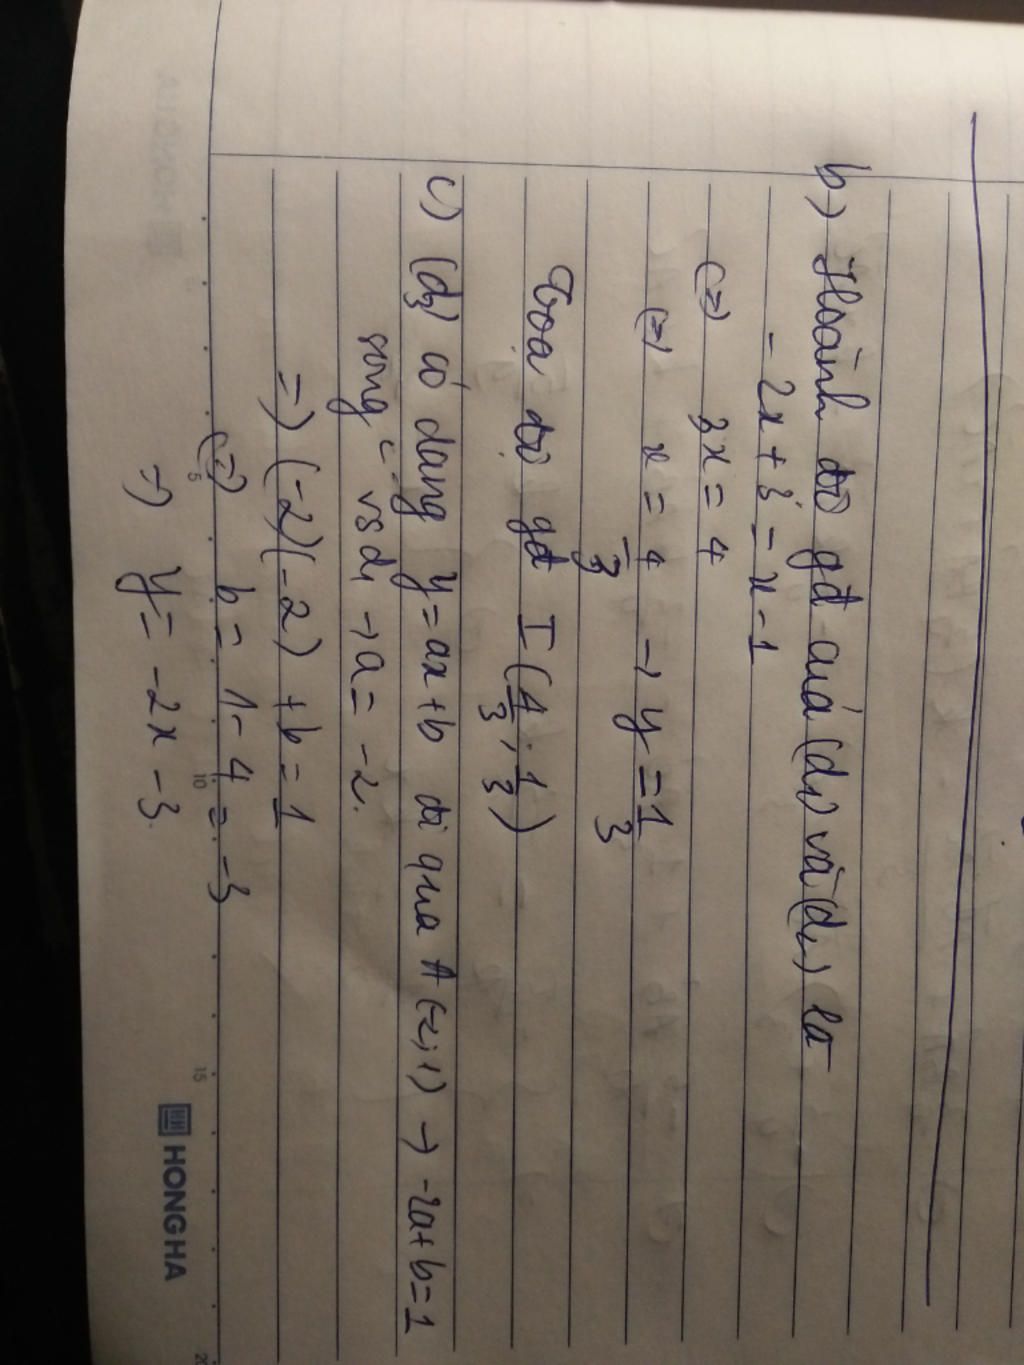 b) Hoành độ gđ cuả (d₁) và (d₂) là
- 2x + 3 = x - 1
(=) 3x = 4
(=) x = 4/3 → y = 1/3
Tọa độ gđ I (4/3; 1/3)
c) (d₃) có dạng y = ax + b đi qua A (-2; 1) → -2a + b = 1
song vs d₁ → a = -2.
=) (-2)(-2) + b = 1
(=) b = 1 - 4 = -3
=) y = -2x - 3.
5 10 15 20
HONG HA